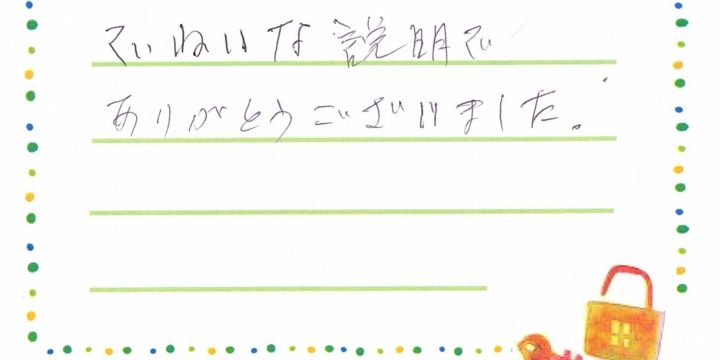 ていねいな説明で
ありがとうございました。